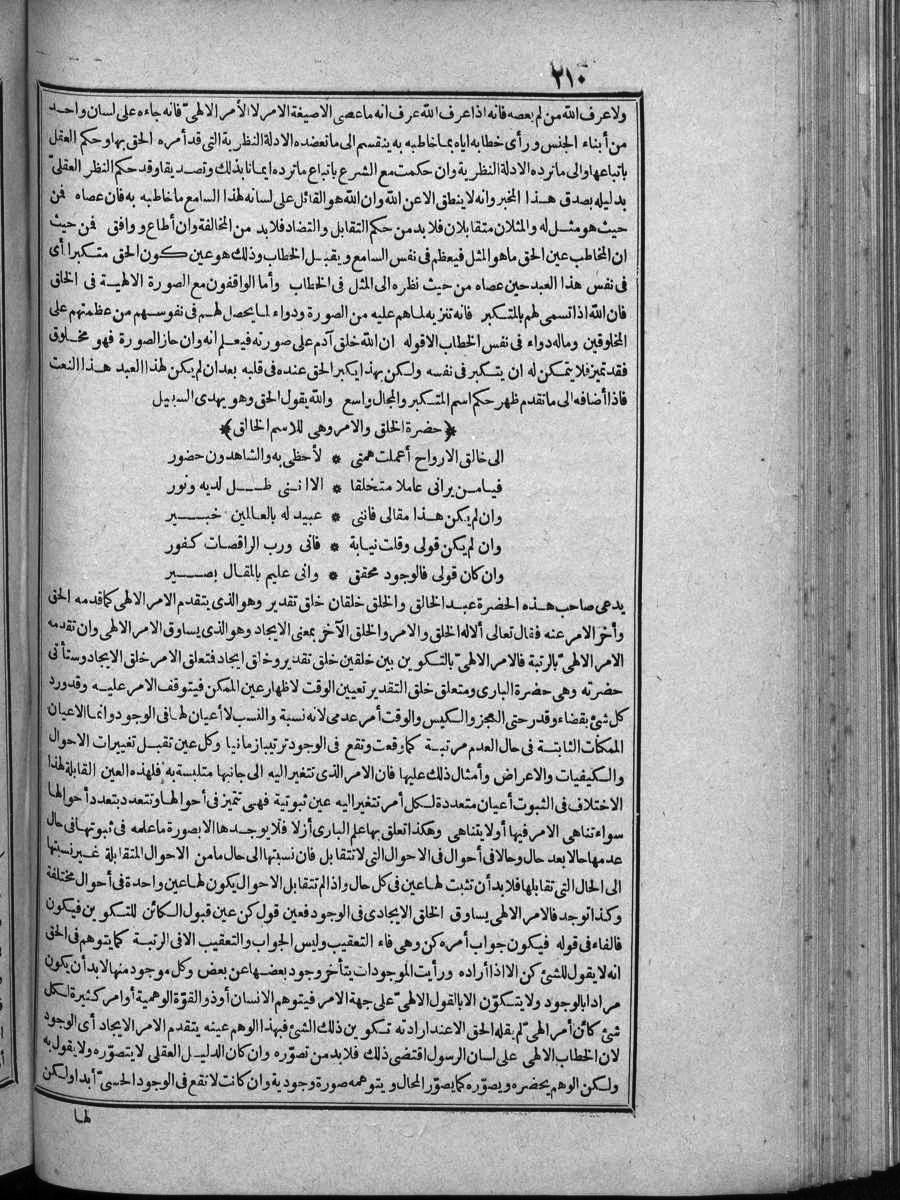 ٢١٠
ولا عرف الله من لم يعصه فانه اذا عرف الله عرف انه ما عصى الا صيغة الامر لا الأمر الالهىّ فانه جاءه على لسان واحد
من أبناء الجنس ورأى خطابه اياه بما خاطبه به ينقسم الى ما تعضده الادلة النظرية التى قد أمره الحق بها وحكم العقل
باتباعها والى ما ترده الادلة النظرية وان حكمت مع الشرع باتباع ما ترده ايمانا بذلك وتصديقا وقد حكم النظر العقلىّ
بدليله بصدق هذا المخبر وانه لا ينطق الا عن الله وان الله هو القائل على لسانه لهذا السامع ما خاطبه به فان عصاه فمن
حيث هو مثل له والمثلان متقابلان فلا بد من حكم التقابل والتضاد فلا بد من المخالفة وان أطاع ووافق فمن حيث
ان المخاطب عين الحق ما هو المثل فيعظم فى نفس السامع ويقبل الخطاب وذلك هو عين كون الحق متكبرا أى
فى نفس هذا العبد حين عصاه من حيث نظره الى المثل فى الخطاب وأما الواقفون مع الصورة الالهية فى الخلق
فان الله اذا تسمى لهم بالمتكبر فانه تنزيه لما هم عليه من الصورة ودواء لما يحصل لهم فى نفوسهم من عظمتهم على
المخلوقين وماله دواء فى نفس الخطاب الا قوله ان الله خلق آدم على صورته فيعلم انه وان حاز الصورة فهو مخلوق
فقد تميز فلا يتمكن له ان يتكبر فى نفسه ولكن بهذا يكبر الحق عنده فى قلبه بعد ان لم يكن لهذا العبد هذا النعت
فاذا أضافه الى ما تقدم ظهر حكم اسم المتكبر والمجال واسع والله يقول الحق وهو يهدى السبيل
﴿حضرة الخلق والامر وهى للاسم الخالق﴾
الى خالق الارواح أعملت همتى * لأحظى به والشاهدون حضور
فيا من يرانى عاملا متخلقا * الا اننى ظل لديه ونور
وان لم يكن هذا مقالى فاننى * عبيد له بالعالمين خبير
وان لم يكن قولى وقلت نيابة * فانى ورب الراقصات كفور
وان كان قولى فالوجود محقق * وانى عليم بالمقال بصير
يدعى صاحب هذه الحضرة عبد الخالق والخلق خلقان خلق تقدير وهو الذى يتقدم الامر الالهى كما قدمه الحق
وأخر الامر عنه فقال تعالى ألا له الخلق والامر والخلق الآخر بمعنى الايجاد وهو الذى يساوق الامر الالهى وان تقدمه
الامر الالهىّ بالرتبة فالامر الالهىّ بالتكوين بين خلقين خلق تقدير وخلق ايجاد فتعلق الامر خلق الايجاد وستأتى
حضرته وهى حضرة البارى ومتعلق خلق التقدير تعيين الوقت لاظهار عين الممكن فيتوقف الامر عليه وقد ورد
كل شئ بقضاء وقدر حتى العجز والكيس والوقت أمر عدمى لانه نسبة والنسب لا أعيان لها فى الوجود وانما الاعيان
الممكنات الثابتة فى حال العدم مرتبة كما وقعت وتقع فى الوجود ترتيبا زمانيا وكل عين تقبل تغييرات الاحوال
والكيفيات والاعراض وأمثال ذلك عليها فان الامر الذى تتغير اليه الى جانبها متلبسة به فلهذه العين القابلة لهذا
الاختلاف فى الثبوت أعيان متعددة لكل أمر تتغير اليه عين ثبوتية فهى تتميز فى أحوالها وتتعدد بتعدد أحوالها
سواء تناهى الامر فيها أولا يتناهى وهكذا تعلق بها علم البارى أزلا فلا يوجدها الا بصورة ما علمه فى ثبوتها فى حال
عدمها حالا بعد حال وحالا فى أحوال فى الاحوال التى لا تتقابل فان نسبتها الى حال ما من الاحوال المتقابلة غير نسبتها
الى الحال التى تقابلها فلا بد أن تثبت لها عين فى كل حال واذا لم تتقابل الاحوال يكون لها عين واحدة فى أحوال مختلفة
وكذا توجد فالامر الالهى يساوق الخلق الايجادى فى الوجود فعين قول كن عين قبول الكائن للتكوين فيكون
فالفاء فى قوله فيكون جواب أمره كن وهى فاء التعقيب وليس الجواب والتعقيب الا فى الرتبة كما يتوهم فى الحق
انه لا يقول للشئ كن الا اذا أراده ورأيت الموجودات يتأخر وجود بعضها عن بعض وكل موجود منها لا بد أن يكون
مرادا بالوجود ولا يتكوّن الا بالقول الالهىّ على جهة الامر فيتوهم الانسان أو ذو القوّة الوهمية أوامر كثيرة لكل
شئ كائن أمر الهىّ لم يقله الحق الا عند ارادته تكوين ذلك الشئ فبهذا الوهم عينه يتقدم الامر الايجاد أى الوجود
لان الخطاب الالهى على لسان الرسول اقتضى ذلك فلا بد من تصوّره وان كان الدليل العقلى لا يتصوّره ولا يقول به
ولكن الوهم يحضره ويصوّره كما يصوّر المحال ويتوهمه صورة وجودية وان كانت لا تقع فى الوجود الحسىّ أبدا ولكن
لها